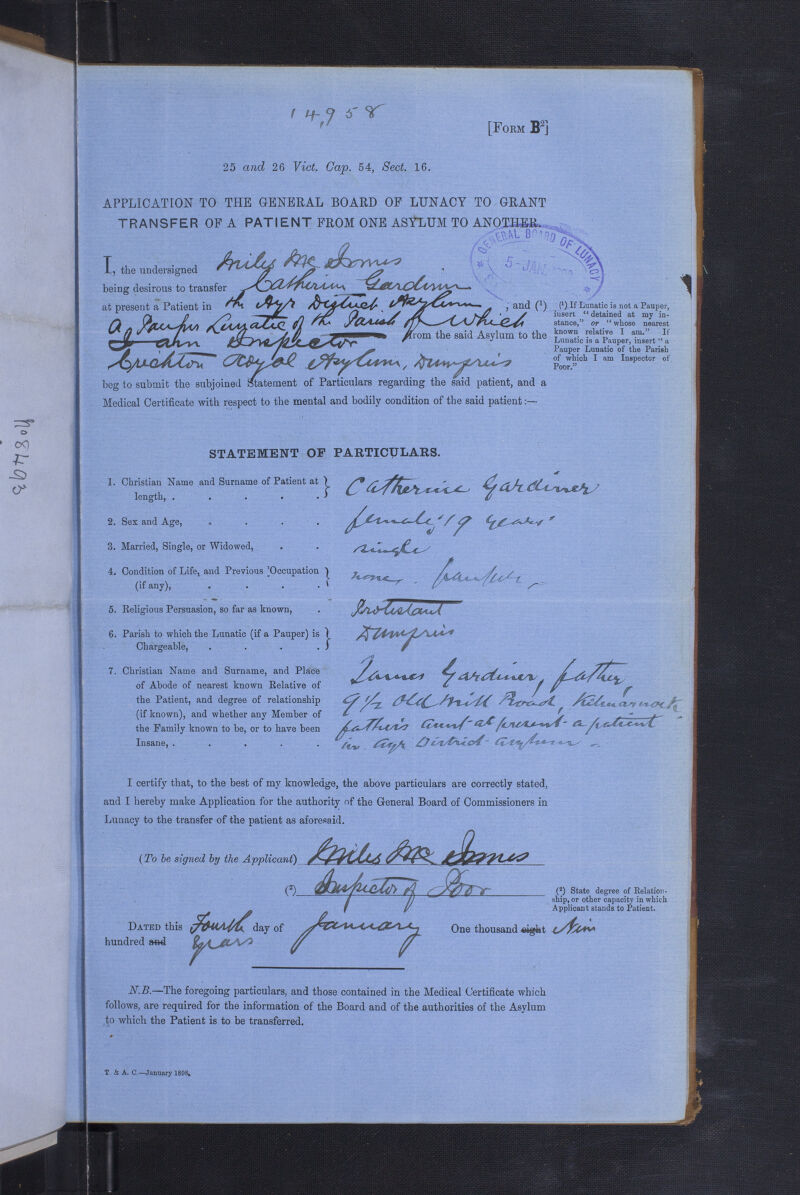 14,958
[FORM B²]
25 and 26 Vict. Cap. 54, Sect. 16.
APPLICATION TO THE GENERAL BOARD OF LUNACY TO GRANT
TRANSFER OF A PATIENT FROM ONE ASYLUM TO ANOTHER.
GENERAL BOARD OF LUNACY
5-JAN
I, the undersigned Miles Mc Innes
being desirous to transfer Catherine Gardiner
at present a Patient in the Ayr District Asylum, and (¹)
A Pauper Lunatic of the Parish of Which
I am Inspector from the said Asylum to the
Crichton Royal Asylum, Dumfries
beg to submit the subjoined Statement of Particulars regarding the said patient, and a
Medical Certificate with respect to the mental and bodily condition of the said patient:—
(¹) If Lunatic is not a Pauper,
insert "detained at my in-
stance," or "whose nearest
known relative I am." If
Lunatic is a Pauper, insert "a
Pauper Lunatic of the Parish
of which I am Inspector of
Poor."
No 8493
STATEMENT OF PARTICULARS.
1. Christian Name and Surname of Patient at
length, . . . . . Catherine Gardiner
2. Sex and Age, . . . . female; 19 years
3. Married, Single, or Widowed, . . single
4. Condition of Life, and Previous Occupation
(if any), . . . . none. pauper
5. Religious Persuasion, so far as known, . Protestant
6. Parish to which the Lunatic (if a Pauper) is
Chargeable, . . . . Dumfries
7. Christian Name and Surname, and Place
of Abode of nearest known Relative of
the Patient, and degree of relationship
(if known), and whether any Member of
the Family known to be, or to have been
Insane, . . . . .
James Gardiner, father,
9½ Old Mill Road, Kilmarnock
father's aunt at present a patient
in Ayr District Asylum
I certify that, to the best of my knowledge, the above particulars are correctly stated,
and I hereby make Application for the authority of the General Board of Commissioners in
Lunacy to the transfer of the patient as aforesaid.
(To be signed by the Applicant) Miles Mc Innes
(²) Inspector of Poor
(²) State degree of Relation-
ship, or other capacity in which
Applicant stands to Patient.
DATED this Fourth day of January One thousand eight Nine
hundred and years
N.B.—The foregoing particulars, and those contained in the Medical Certificate which
follows, are required for the information of the Board and of the authorities of the Asylum
to which the Patient is to be transferred.
T. & A. C.—January 1898.